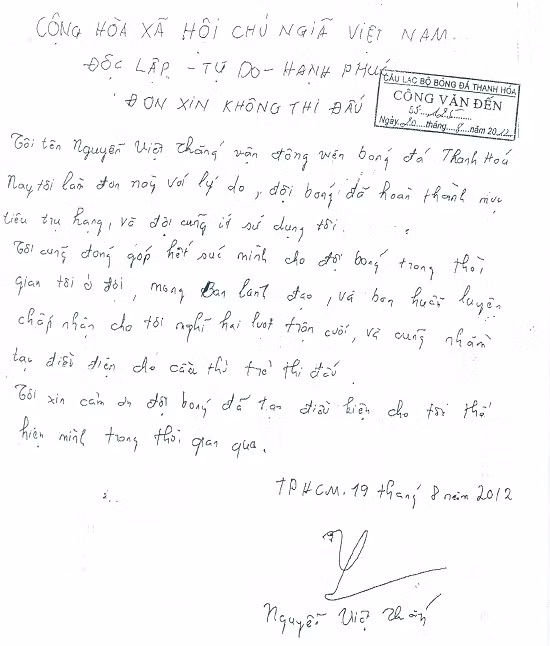 CỘNG HÒA XÃ HỘI CHỦ NGIÃ VIỆT NAM.
ĐỘC LẬP - TỰ DO - HẠNH PHÚC
ĐƠN XIN KHÔNG THI ĐẤU
CÂU LẠC BỘ BÓNG ĐÁ THANH HÓA
CÔNG VĂN ĐẾN
Ngày 20 tháng 8 năm 2012
Tôi tên Nguyễn Việt Thắng vận động wên bóng đá Thanh Hoá
Nay tôi làm đơn này với lý do, đội bóng đã hoàn thành mục
tiêu trụ hạng, và đội cũng ít sử dụng tôi.
Tôi cũng đóng góp hết sức mình cho đội bóng trong thời
gian tôi ở đội, mong Ban lãnh đạo, và ban huấn luyện
chấp nhận cho tôi nghĩ hai lượt trận cuối, và cũng nhằm
tạo điều điện cho cầu thủ trẻ thi đấu.
Tôi xin cảm ơn đội bóng đã tạo điều kiện cho tôi thể
hiện mình trong thời gian qua.
TPHCM. 19 tháng 8 năm 2012
Nguyễn Việt Thắng